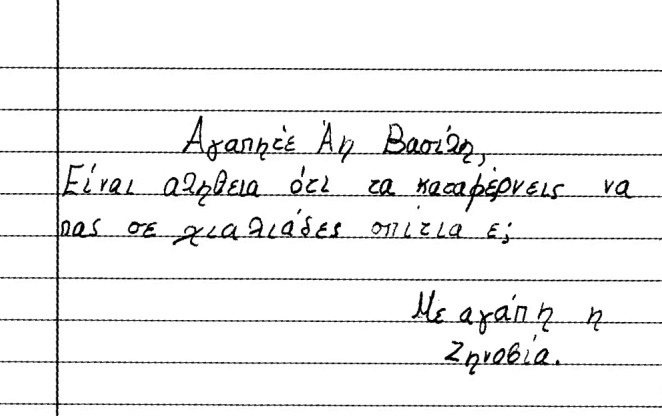 Αγαπητέ Άη Βασίλη,
Είναι αληθεια ότι τα καταφέρνεις να
πας σε χιαλιάδες σπίτια ε;
Με αγάπη η
Ζηνοβία.